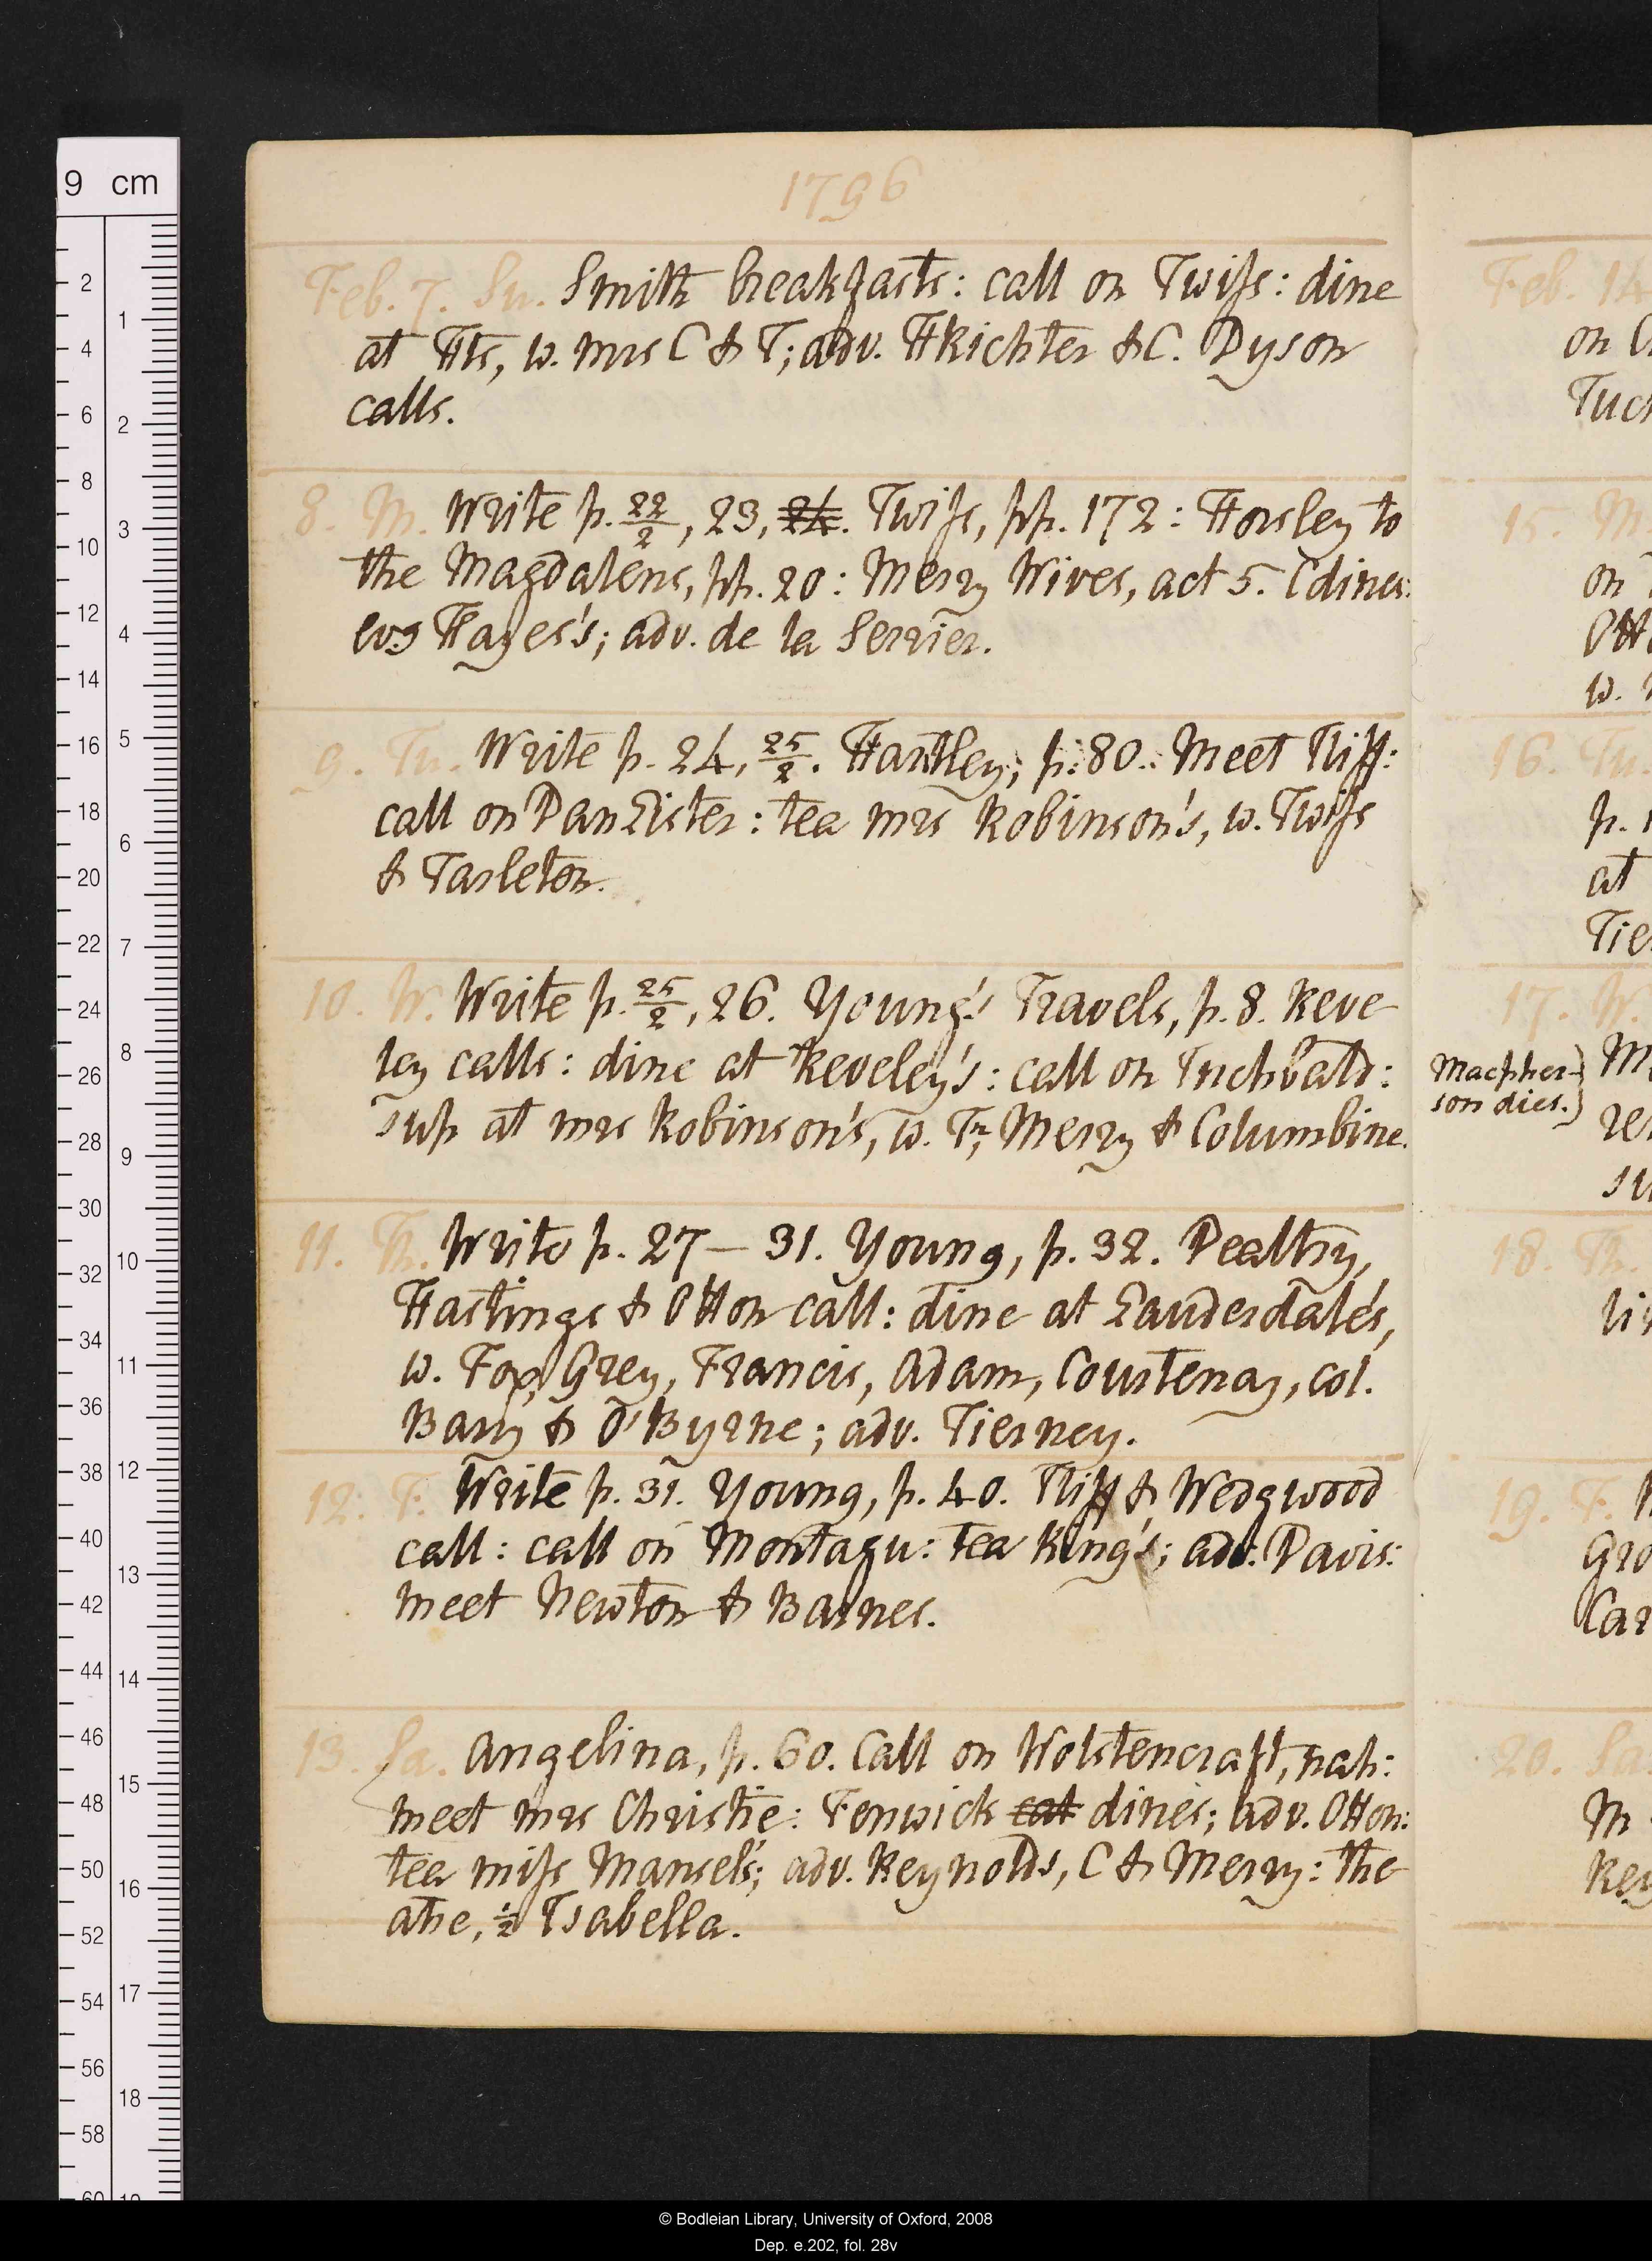 1796
Feb. 7. Su. Smith breakfasts: call on Twiss: dine
at Hts, w. mrs C & T; adv. HRichter & C. Dyson
calls.
8. M. Write p. 22/2, 23, 24. Twiss, pp. 172: Horsley to
the Magdalens, pp. 20: Merry Wives, act 5. C dines:
evg Hayes's; adv. de la Serrier.
9. Tu. Write p. 24, 25/2. Hartley, p. 80. Meet Iliff:
call on Dan Lister: tea mrs Robinson's, w. Twiss
& Tarleton.
10. W. Write p. 25/2, 26. Young's Travels, p. 8. Reve-
ley calls: dine at Reveley's: call on Inchbald:
sup at mrs Robinson's, w. Tn, Merry & Columbine.
11. Th. Write p. 27–31. Young, p. 32. Dealtry,
Hastings & Otton call: dine at Lauderdale's,
w. Fox, Grey, Francis, Adam, Courtenay, col.
Barry & O'Byrne; adv. Tierney.
12. F. Write p. 31. Young, p. 40. Iliff & Wedgwood
call: call on Montagu: tea King's; adv. Davis:
meet Newton & Barnes.
13. Sa. Angelina, p. 60. Call on Wolstencraft, nah:
meet mrs Christie: Fenwick cat dines; adv. Otton:
tea miss Mansel's; adv. Reynolds, C & Merry: the
atre, 1/2 Isabella.
Feb. 14
on
Tuc
15. M.
on
Ott
w.
16. Tu.
p.
at
Tie
17. W.
Macpher-
son dies.
M
re
su
18. Th.
li
19. F.
Gro
Car
20. Sa.
M
Rey
9 cm
2 4 6 8 10 12 14 16 18 20 22 24 26 28 30 32 34 36 38 40 42 44 46 48 50 52 54 56 58 60
1 2 3 4 5 6 7 8 9 10 11 12 13 14 15 16 17 18 19
© Bodleian Library, University of Oxford, 2008
Dep. e.202, fol. 28v